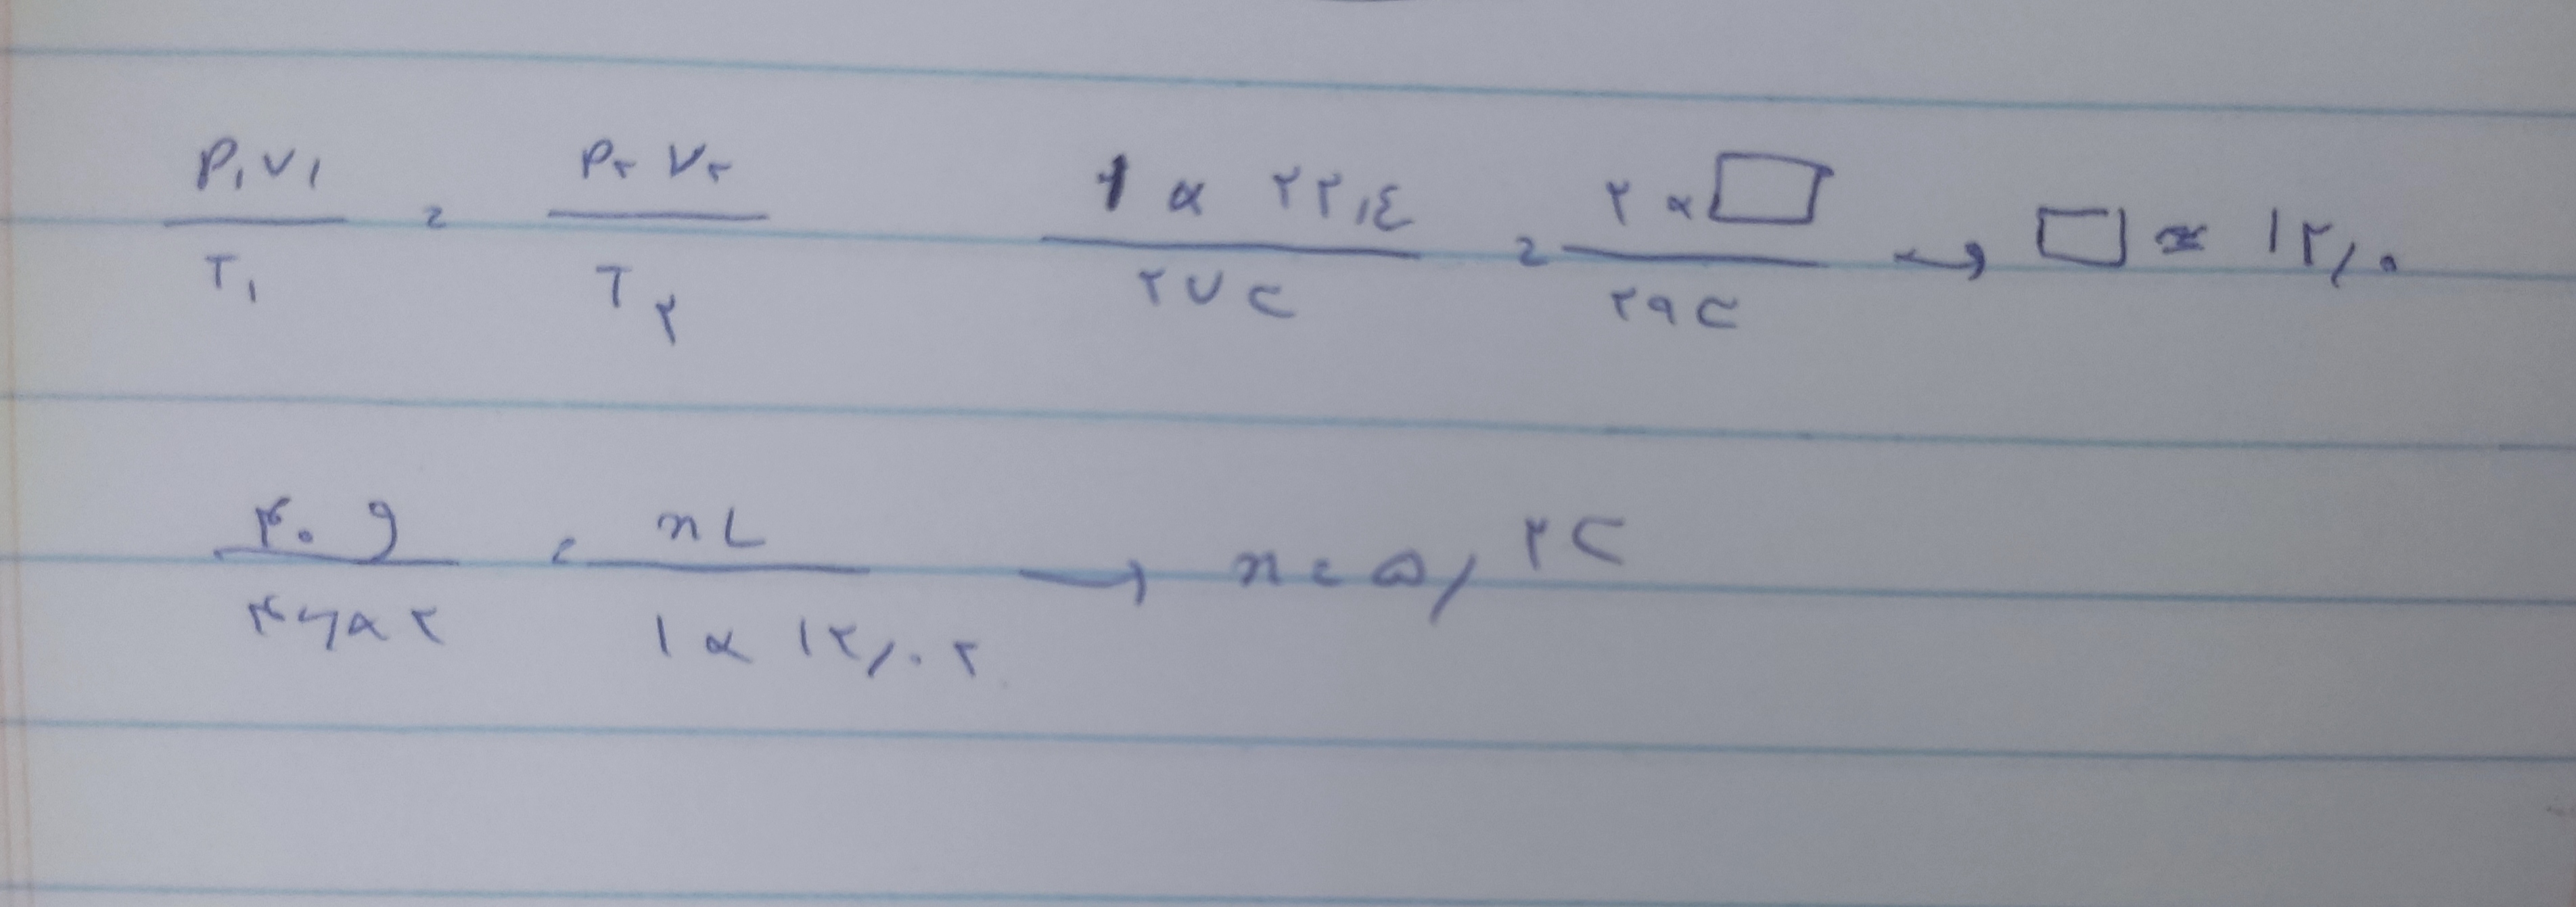 P₁V₁ / T₁ = P₂V₂ / T₂    ۱ × ۲۲,٤ / ۲۷۳ = ۲ × □ / ۲۹۳ → □ = ۱۲٫۰
۴۰ g / ۴۶ × ۲ = x L / ۱ × ۱۲٫۰۲ → x = ۵٫۲۳